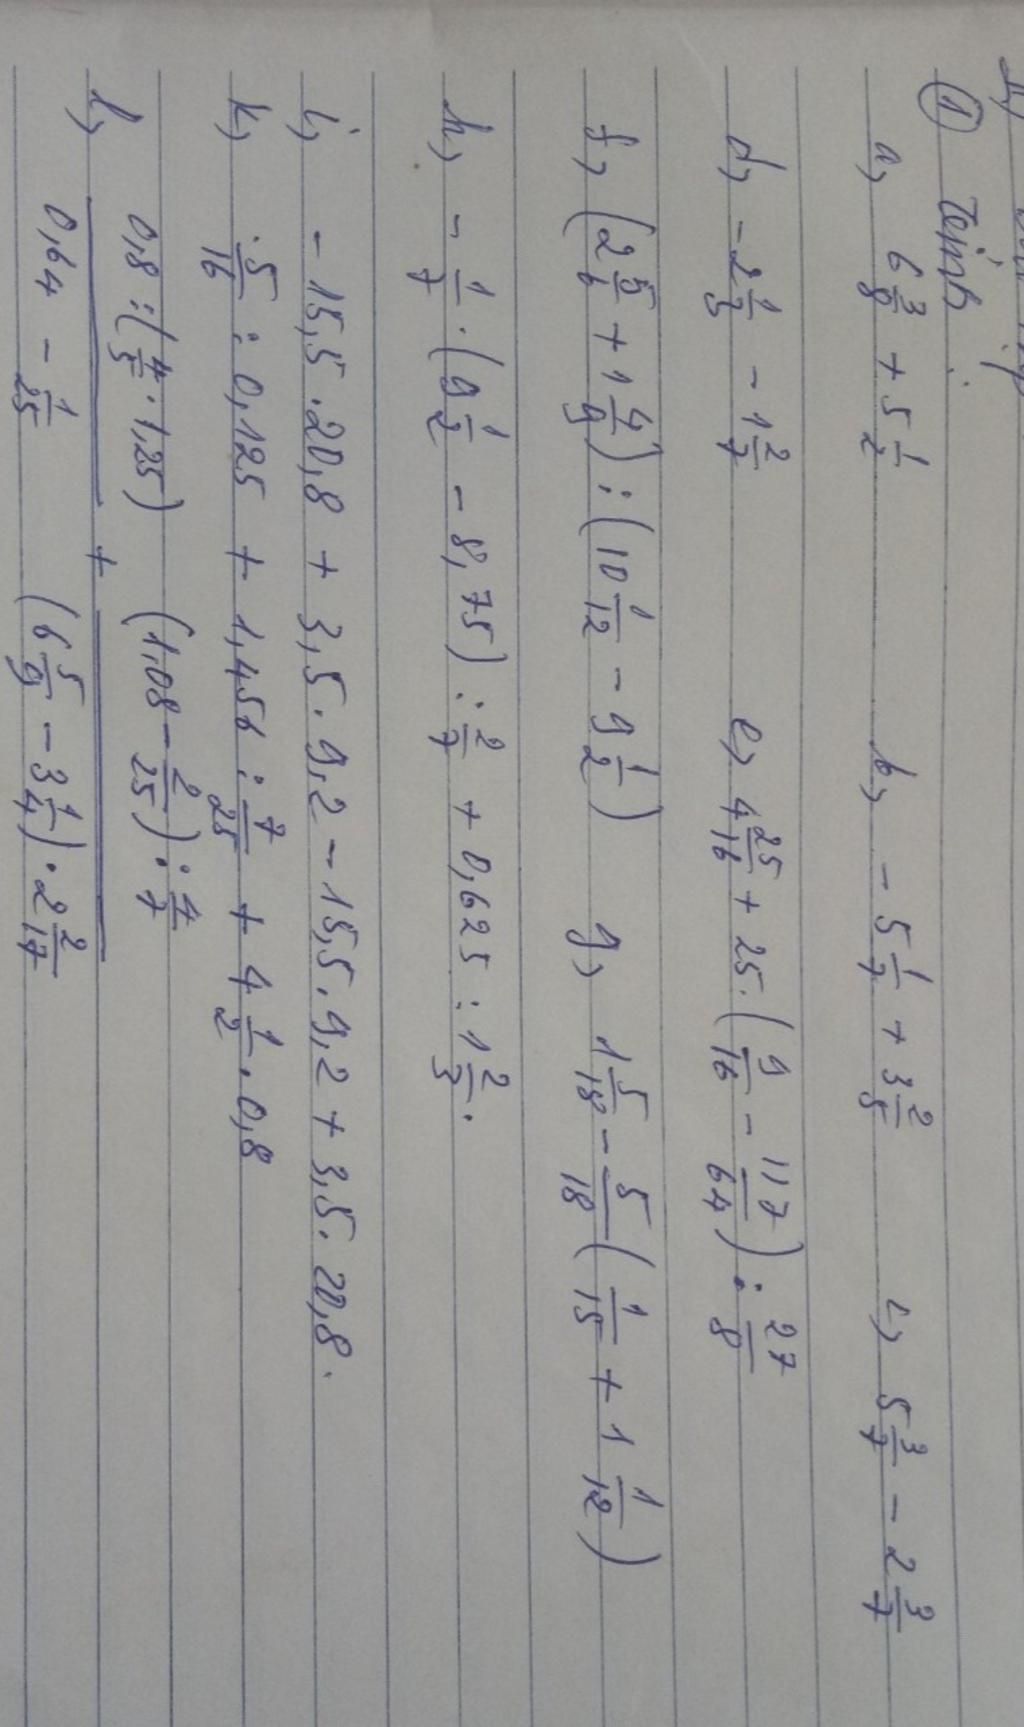 ① Tính:
a, 6 3/8 + 5 1/2 b, - 5 1/7 + 3 2/5 c, 5 3/7 - 2 3/7
d, - 2 1/3 - 1 2/7 e, 4 25/16 + 25 . (9/16 - 117/64) : 27/8
f, (2 5/6 + 1 4/9) : (10 1/12 - 9 1/2) g, 1 5/18 - 5/18 (1/15 + 1 1/12)
h, - 1/7 . (9 1/2 - 8,75) : 2/7 + 0,625 : 1 2/3.
i, - 15,5 . 20,8 + 3,5 . 9,2 - 15,5 . 9,2 + 3,5 . 20,8.
k, 5/16 : 0,125 + 1,456 : 7/25 + 4 1/2 . 0,8
l, (0,8 : (4/5 . 1,25))/(0,64 - 1/25) + ((1,08 - 2/25) : 4/7)/((6 5/9 - 3 1/4) . 2 2/17)